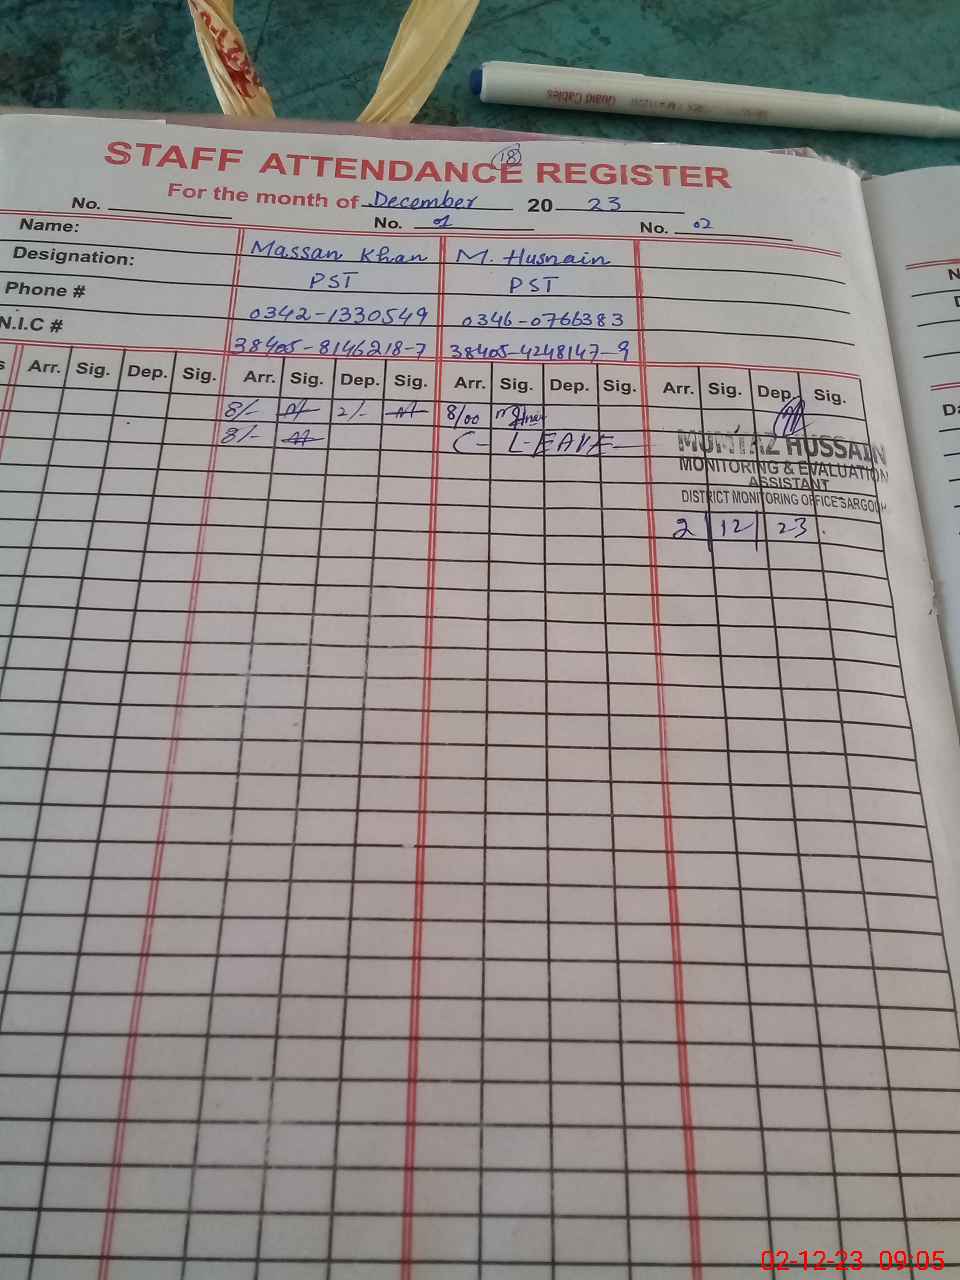 Guard Cables
18
STAFF ATTENDANCE REGISTER
For the month of December 2023
No. No. 01 No. 02
Name: Massan Khan M. Husnain
Designation: PST PST
Phone # 0342-1330549 0346-0766383
N.I.C # 38405-8146218-7 38405-4248147-9
Arr. Sig. Dep. Sig. Arr. Sig. Dep. Sig. Arr. Sig. Dep. Sig. Arr. Sig. Dep. Sig.
8/- 2/- 8/00
8/- C- LEAVE
MUMTAZ HUSSAIN
MONITORING & EVALUATION
ASSISTANT
DISTRICT MONITORING OFFICE SARGODH
2 12 23
02-12-23 09:05